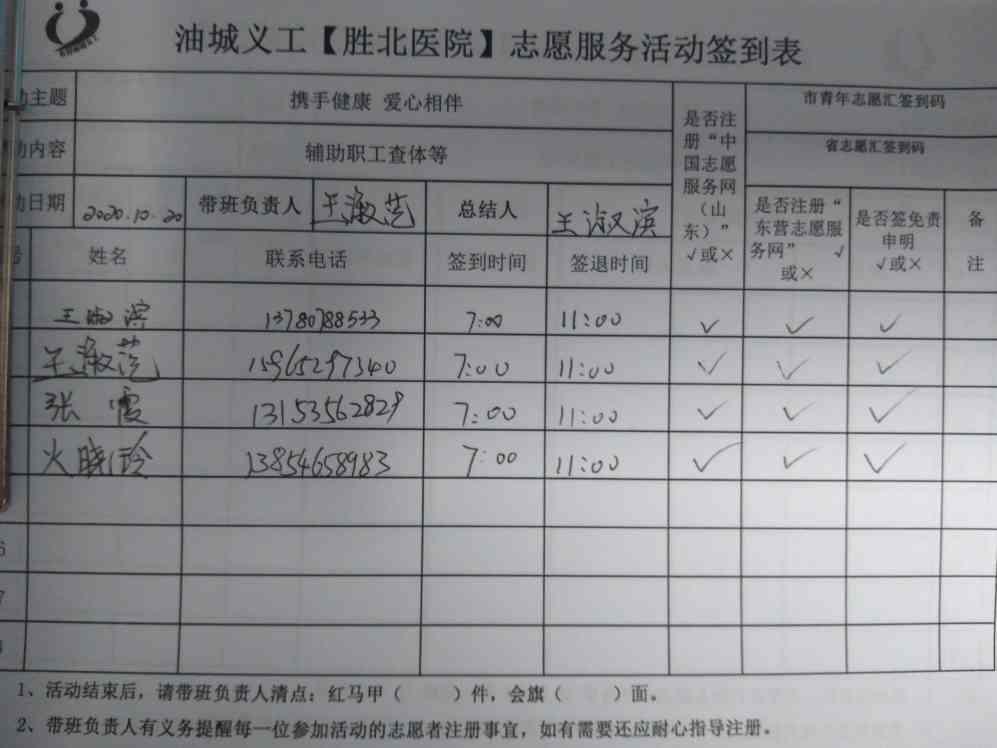 油城义工【胜北医院】志愿服务活动签到表
动主题 携手健康 爱心相伴 是否注册“中国志愿服务网（山东）”√或× 市青年志愿汇签到码
动内容 辅助职工查体等 省志愿汇签到码
动日期 2020.10.20 带班负责人 王淑芸 总结人 王淑滨 是否注册“东营志愿服务网” √或× 是否签免责申明√或× 备注
号 姓名 联系电话 签到时间 签退时间
王淑滨 13780788533 7:00 11:00 ✓ ✓ ✓
王淑范 15965297340 7:00 11:00 ✓ ✓ ✓
张霞 13153562829 7:00 11:00 ✓ ✓ ✓
火晓玲 13854658983 7:00 11:00 ✓ ✓ ✓
6
7
1、活动结束后，请带班负责人清点：红马甲（ ）件，会旗（ ）面。
2、带班负责人有义务提醒每一位参加活动的志愿者注册事宜，如有需要还应耐心指导注册。